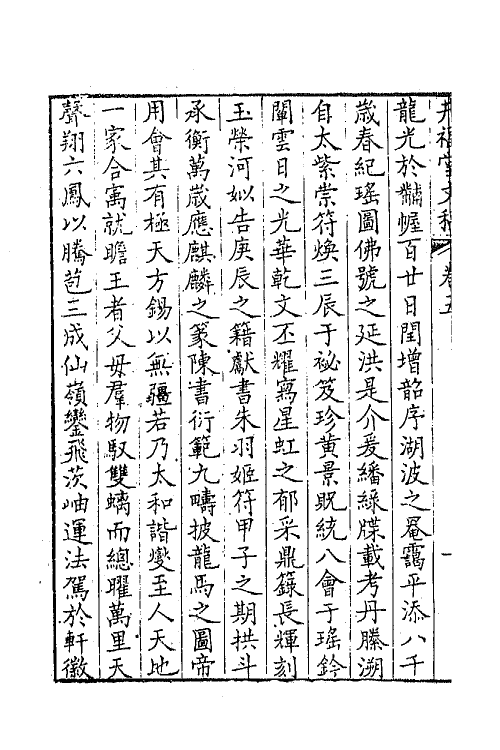 井福堂文稿 卷五 一
龍光於黼幄百廿日閏增韶序湖波之罨靄平添八千
歲春紀瑤圖佛號之延洪是介爰繙綠牒載考丹縢溯
自太紫崇符煥三辰于祕笈珍黃景貺統八會于瑤鈐
闡雲日之光華乾文丕耀寫星虹之郁采鼎籙長輝刻
玉榮河姒告庚辰之籍獻書朱羽姬符甲子之期拱斗
承衡萬歲應麒麟之篆陳書衍範九疇披龍馬之圖帝
用會其有極天方錫以無疆若乃太和諧燮至人天地
一家合㝢就瞻王者父母羣物馭雙螭而總曜萬里天
聲翔六鳳以騰苞三成仙嶺鑾飛茨岫運法駕於軒徽